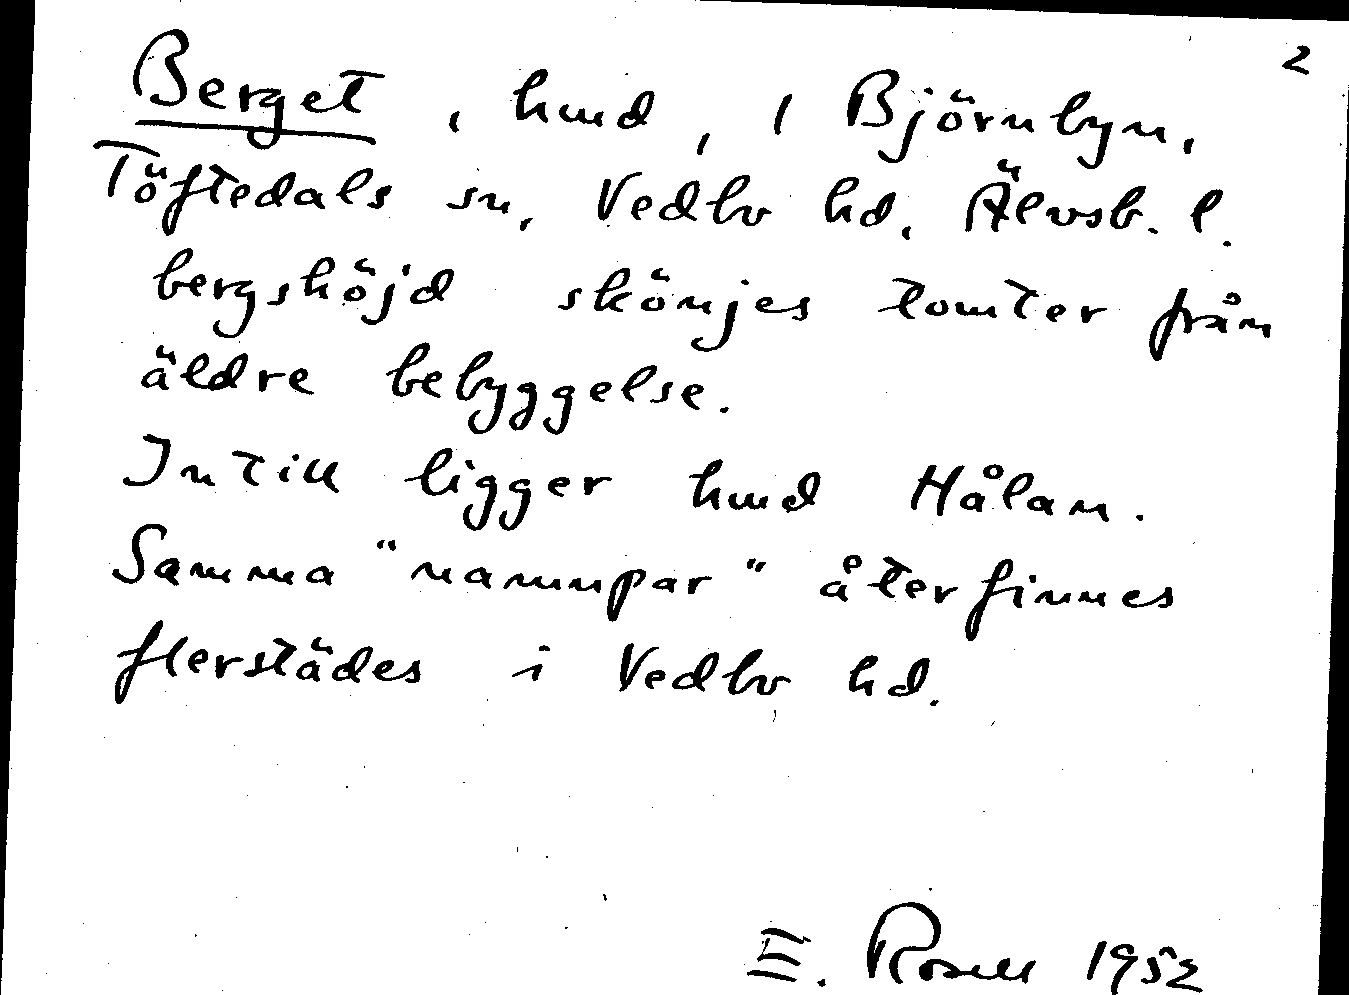 2
Berget, hmd, 1 Björnbyn,
Töftedals sn, Vedbo hd, Älvsb. l.
bergshöjd skönjes tomter från
äldre bebyggelse.
Intill ligger hmd Hålan.
Samma "namnpar" återfinnes
flerstädes i Vedbo hd.
E. Rosell 1952